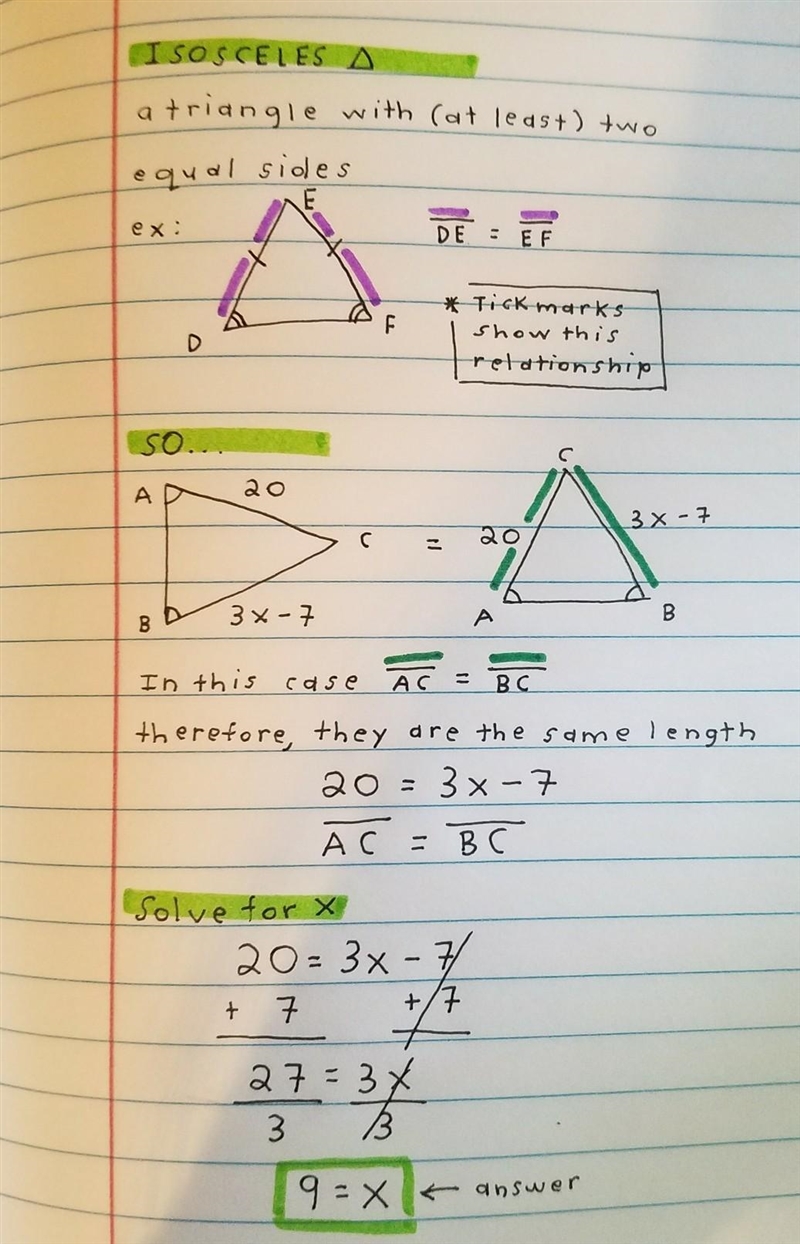 ISOSCELES Δ
a triangle with (at least) two
equal sides
ex:
E
D
F
DE = EF
* Tickmarks
show this
relationship
SO...
A
20
C
B
3x-7
=
C
20
3x-7
A
B
In this case AC = BC
therefore, they are the same length
20 = 3x-7
AC = BC
Solve for x
20 = 3x - 7
+ 7 + 7
27 = 3x
3 3
9 = x ← answer